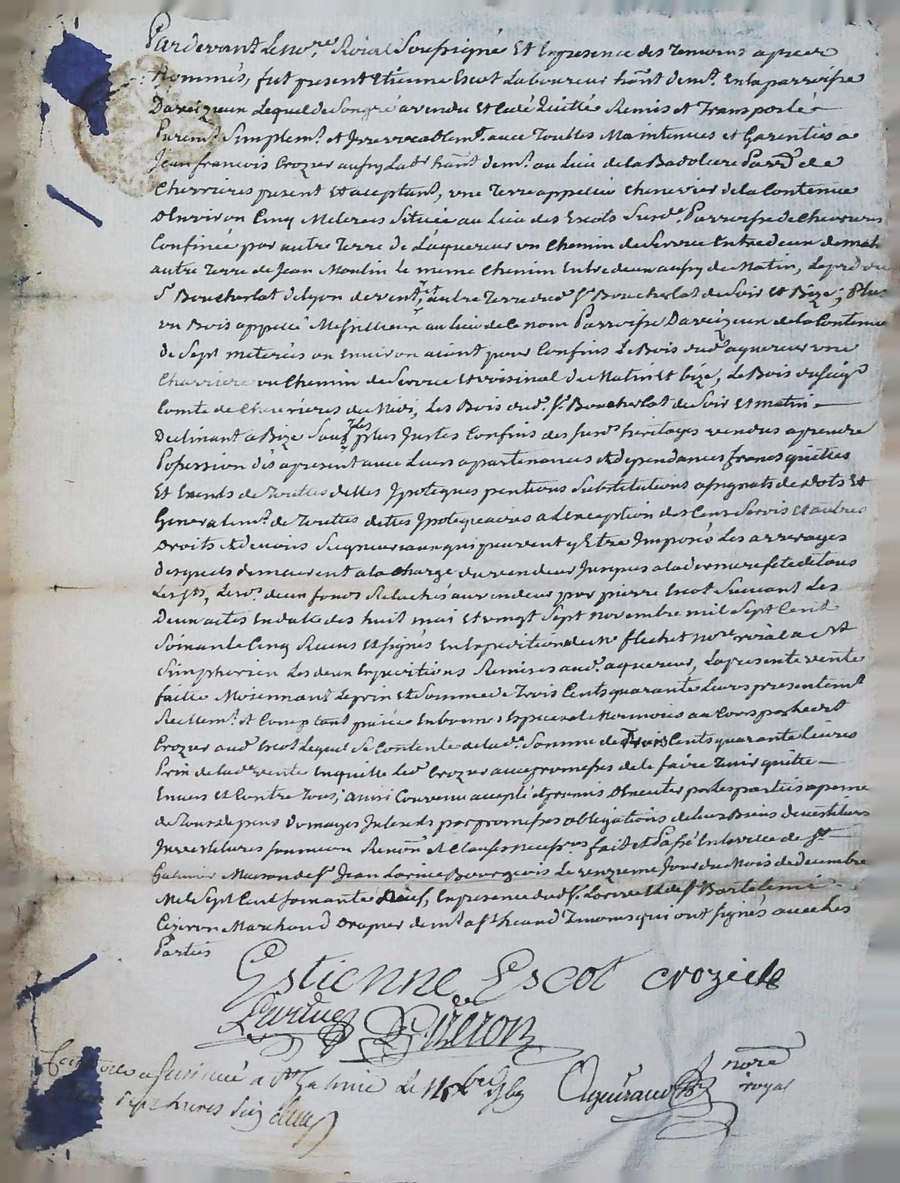 Pardevant Le no.re Roial Soussigné Et En presence des Temoins apres
Nommés, fut present Etienne Escot Laboureur hānt dem.t En la parroisse
Lequel de Son gré a vendu et Cedé Quitté Remis et Transporté
Purem.t Simplem.t et Irrevocablem.t avec Touttes Maintenues et Garenties a
Jean francois Crozier aussy Lab.r hānt dem.t au Lieu de la Badoliere Parr.se de
Chevrieres present Et aceptant, une Terre appellée Chenevier de la Contenue
d'Environ Cinq Meterees Située au Lieu des Escots Susd.e Parroisse de Chevrieres
Confinée par autre Terre de L'aquereur un Chemin de Service Entredeux de matin
autre Terre de Jean Moulin le meme Chemin Entredeux aussy de Matin, Le pré du
S.r Boucherlat de Lyon de vent, et autre Terre dud. S.r Boucherlat de Soir et Bize; Plus
un Bois appellé au Lieu de ce nom Parroisse de la Contenue
de Sept meterées ou Environ aiant pour Confins Le Bois dud. aquereur une
Charriere ou Chemin de Service Et voisinal du Matin Et bize, Le Bois du Seig.r
Comte de Chevrieres du Midi, Les Bois dud. S.r Boucherlat de Soir Et matin
Declinant a Bize Sauf plus Justes Confins des Susd. heritages vendus a prendre
Possession dès apresent avec Leurs apartenances et dependances francs quittes
Et Exents de Touttes dettes Ipoteques pentions Substitutions assignats de dots Et
Generalem.t de Touttes dettes Ipotequaires a L'exception des Cens Servis et autres
Droits et devoirs Seigneuriaux qui peuvent y Etre Imposés Les arrerages
desquels demeurent a la Charge du vendeur Jusques a la derniere fete de tous
Les Sts, de un fonds Relaché au vendeur par pierre Escot Suivant Les
Deux actes En date des huit mai Et vingt Sept novembre mil Sept Cent
Soixante Cinq Recus Et Signés En Expedition de M.e flechet no.re roial a S.t
Simphorien Les deux Expeditions Remises aud. aquereur, La presente vente
faitte Moiennant Le prix Et Somme de Trois Cents quarante Livres presentem.t
Reellem.t et Comptant paiée En bonnes Especes de Monnoie au Cours par Ledit
Crozier aud. Escot Lequel Se Contente de Lad.e Somme de Trois Cents quarante Livres
Prix de Lad.e vente En quitte Led. Crozier avec promesses de le faire Tenir quitte
Envers et Contre Tous; ainsi Convenu accepté et promis Observer par les parties a peine
de Tous depens domages Interets par promesses obligations de Leurs Biens
Investitures Renon. et Clauses fait et Passé En la ville de S.t
Galmier Maison de S.r Jean Bourgeois Le onzieme Jour du Mois de decembre
Mil Sept Cent soixante Neuf, En presence dud. S.r et de S.r Bartelemi
Cizeron Marchand Drapier dem.t a S.t heand Temoins qui ont Signés avec Les
Parties
Estienne Escot crozier
Cizeron
nore
royal
a S.t Galmier Le